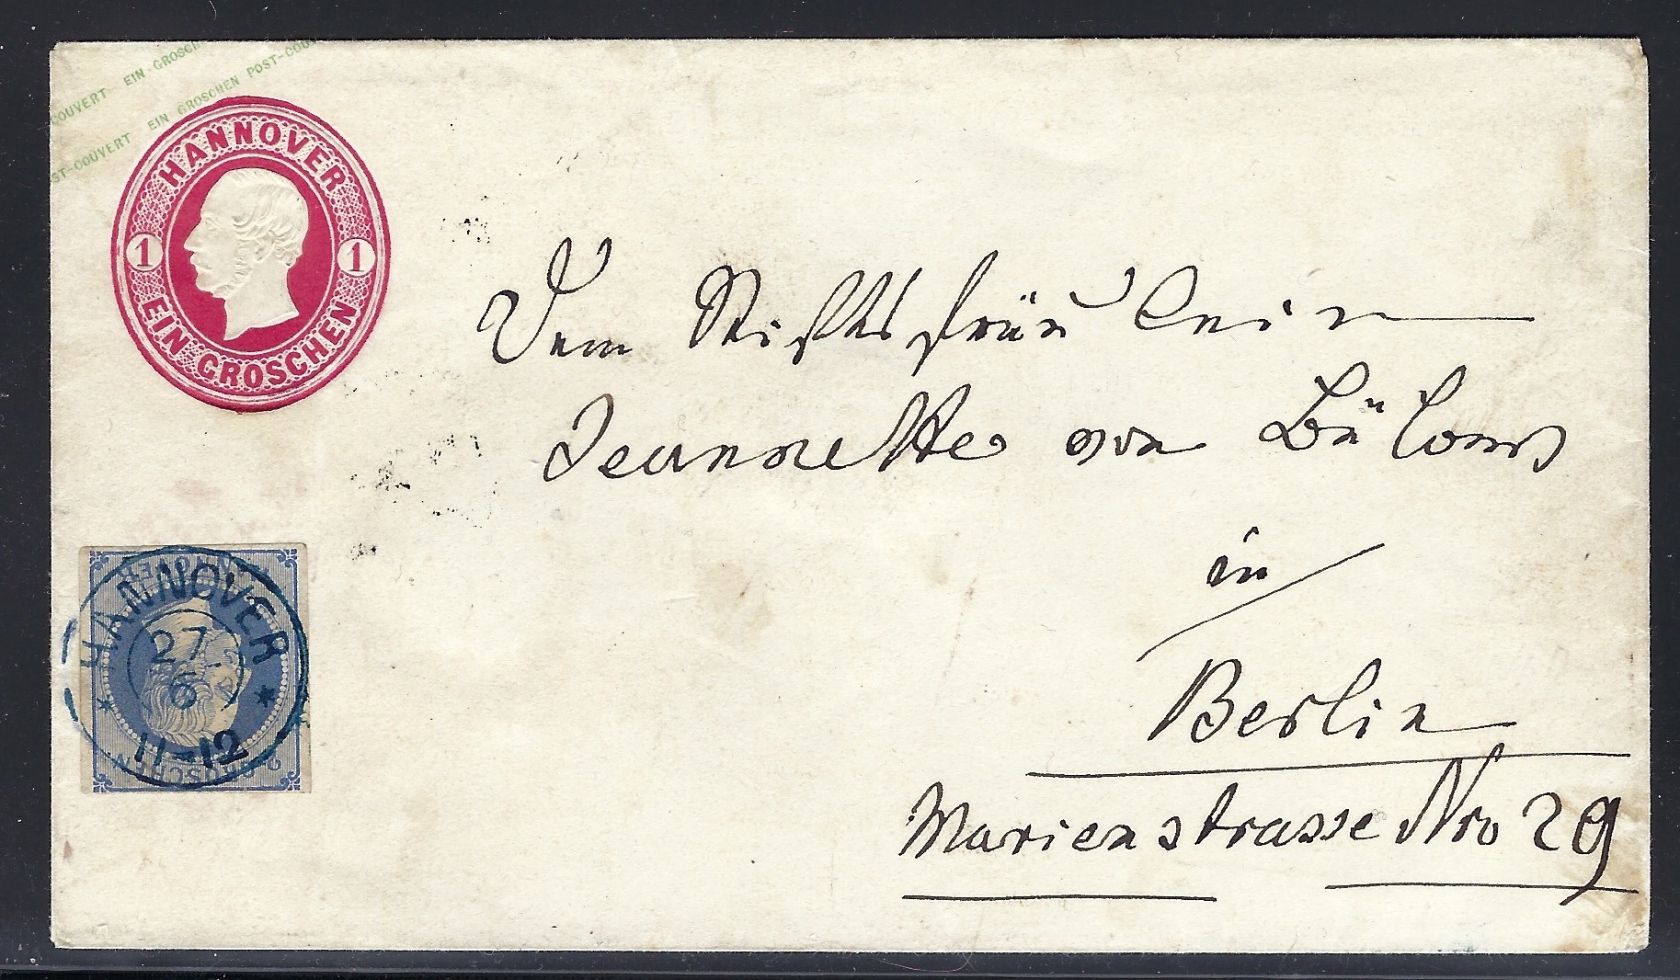 COUVERT EIN GROSCH
ST-COUVERT EIN GROSCHEN POST-COU
HANNOVER
1 1
EIN GROSCHEN
Dem Stiftsfräulein
Jeannette von Bülow
in
Berlin
Marienstrasse Nro 29
HANNOVER
27
6
11-12
GROSCHEN